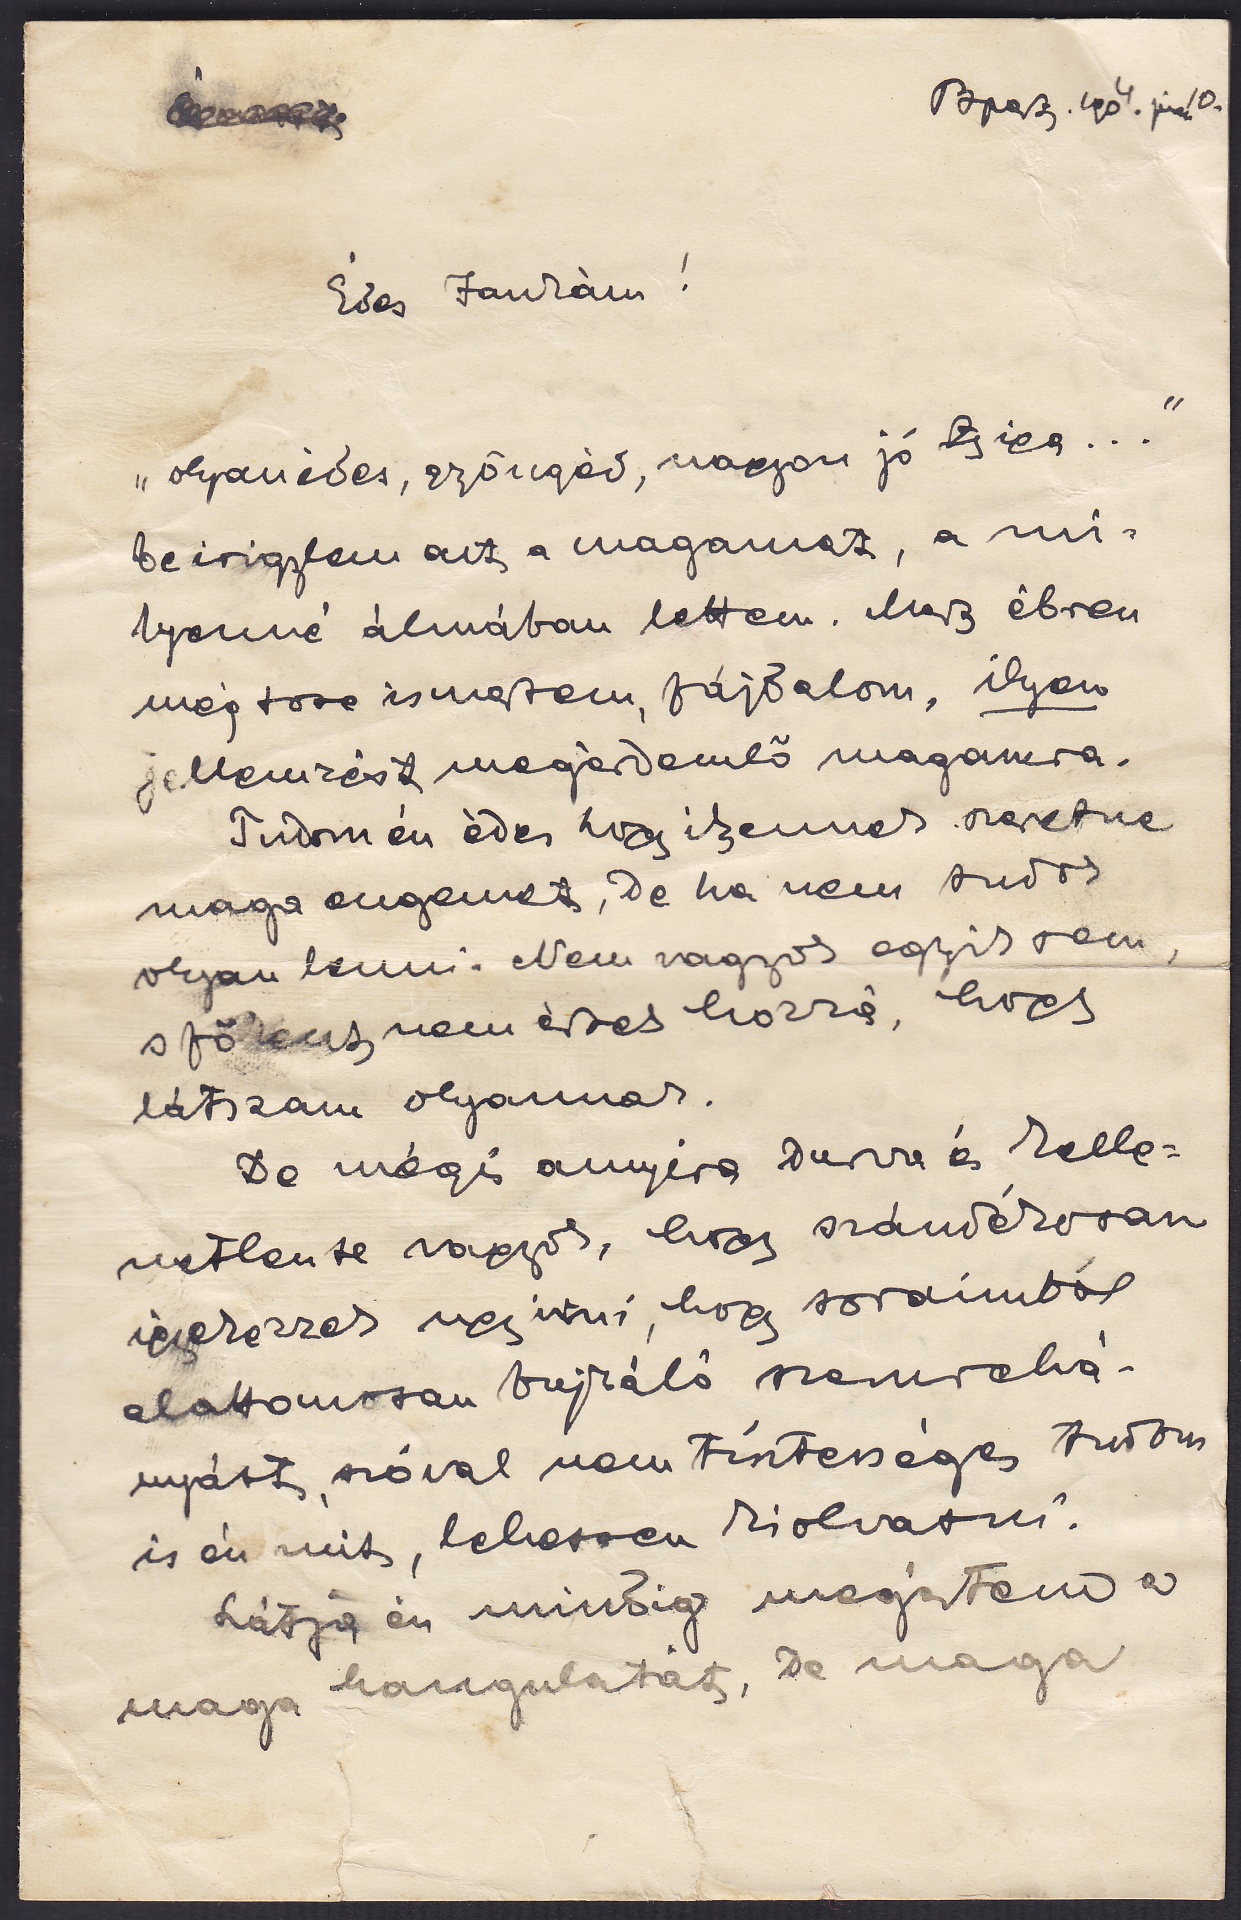 Bpest. 1904. jun 10.
Édes Jankám!
„olyan édes, gyöngéd, nagyon jó Zsiga..."
be irigylem azt a magamat, a mi-
lyenné álmában lettem. Mert ébren
még sose ismertem, fájdalom, ilyen
jellemzést megérdemlő magamra.
Tudom én édes hogy ilyennek szeretne
maga engemet, de ha nem tudok
olyan lenni. Nem vagyok egyik sem,
s főként nem értek hozzá, hogy
látszam olyannak.
De mégis annyira durva és kelle-
metlen se vagyok, hogy szándékosan
igyekezzek ugy irni, hogy soraimból
alattomosan bujkáló szemrehá-
nyást, szóval nem tisztességes tudom
is én mit, lehessen kiolvasni.
Látja én mindig megértem a
maga hangulatát, de maga